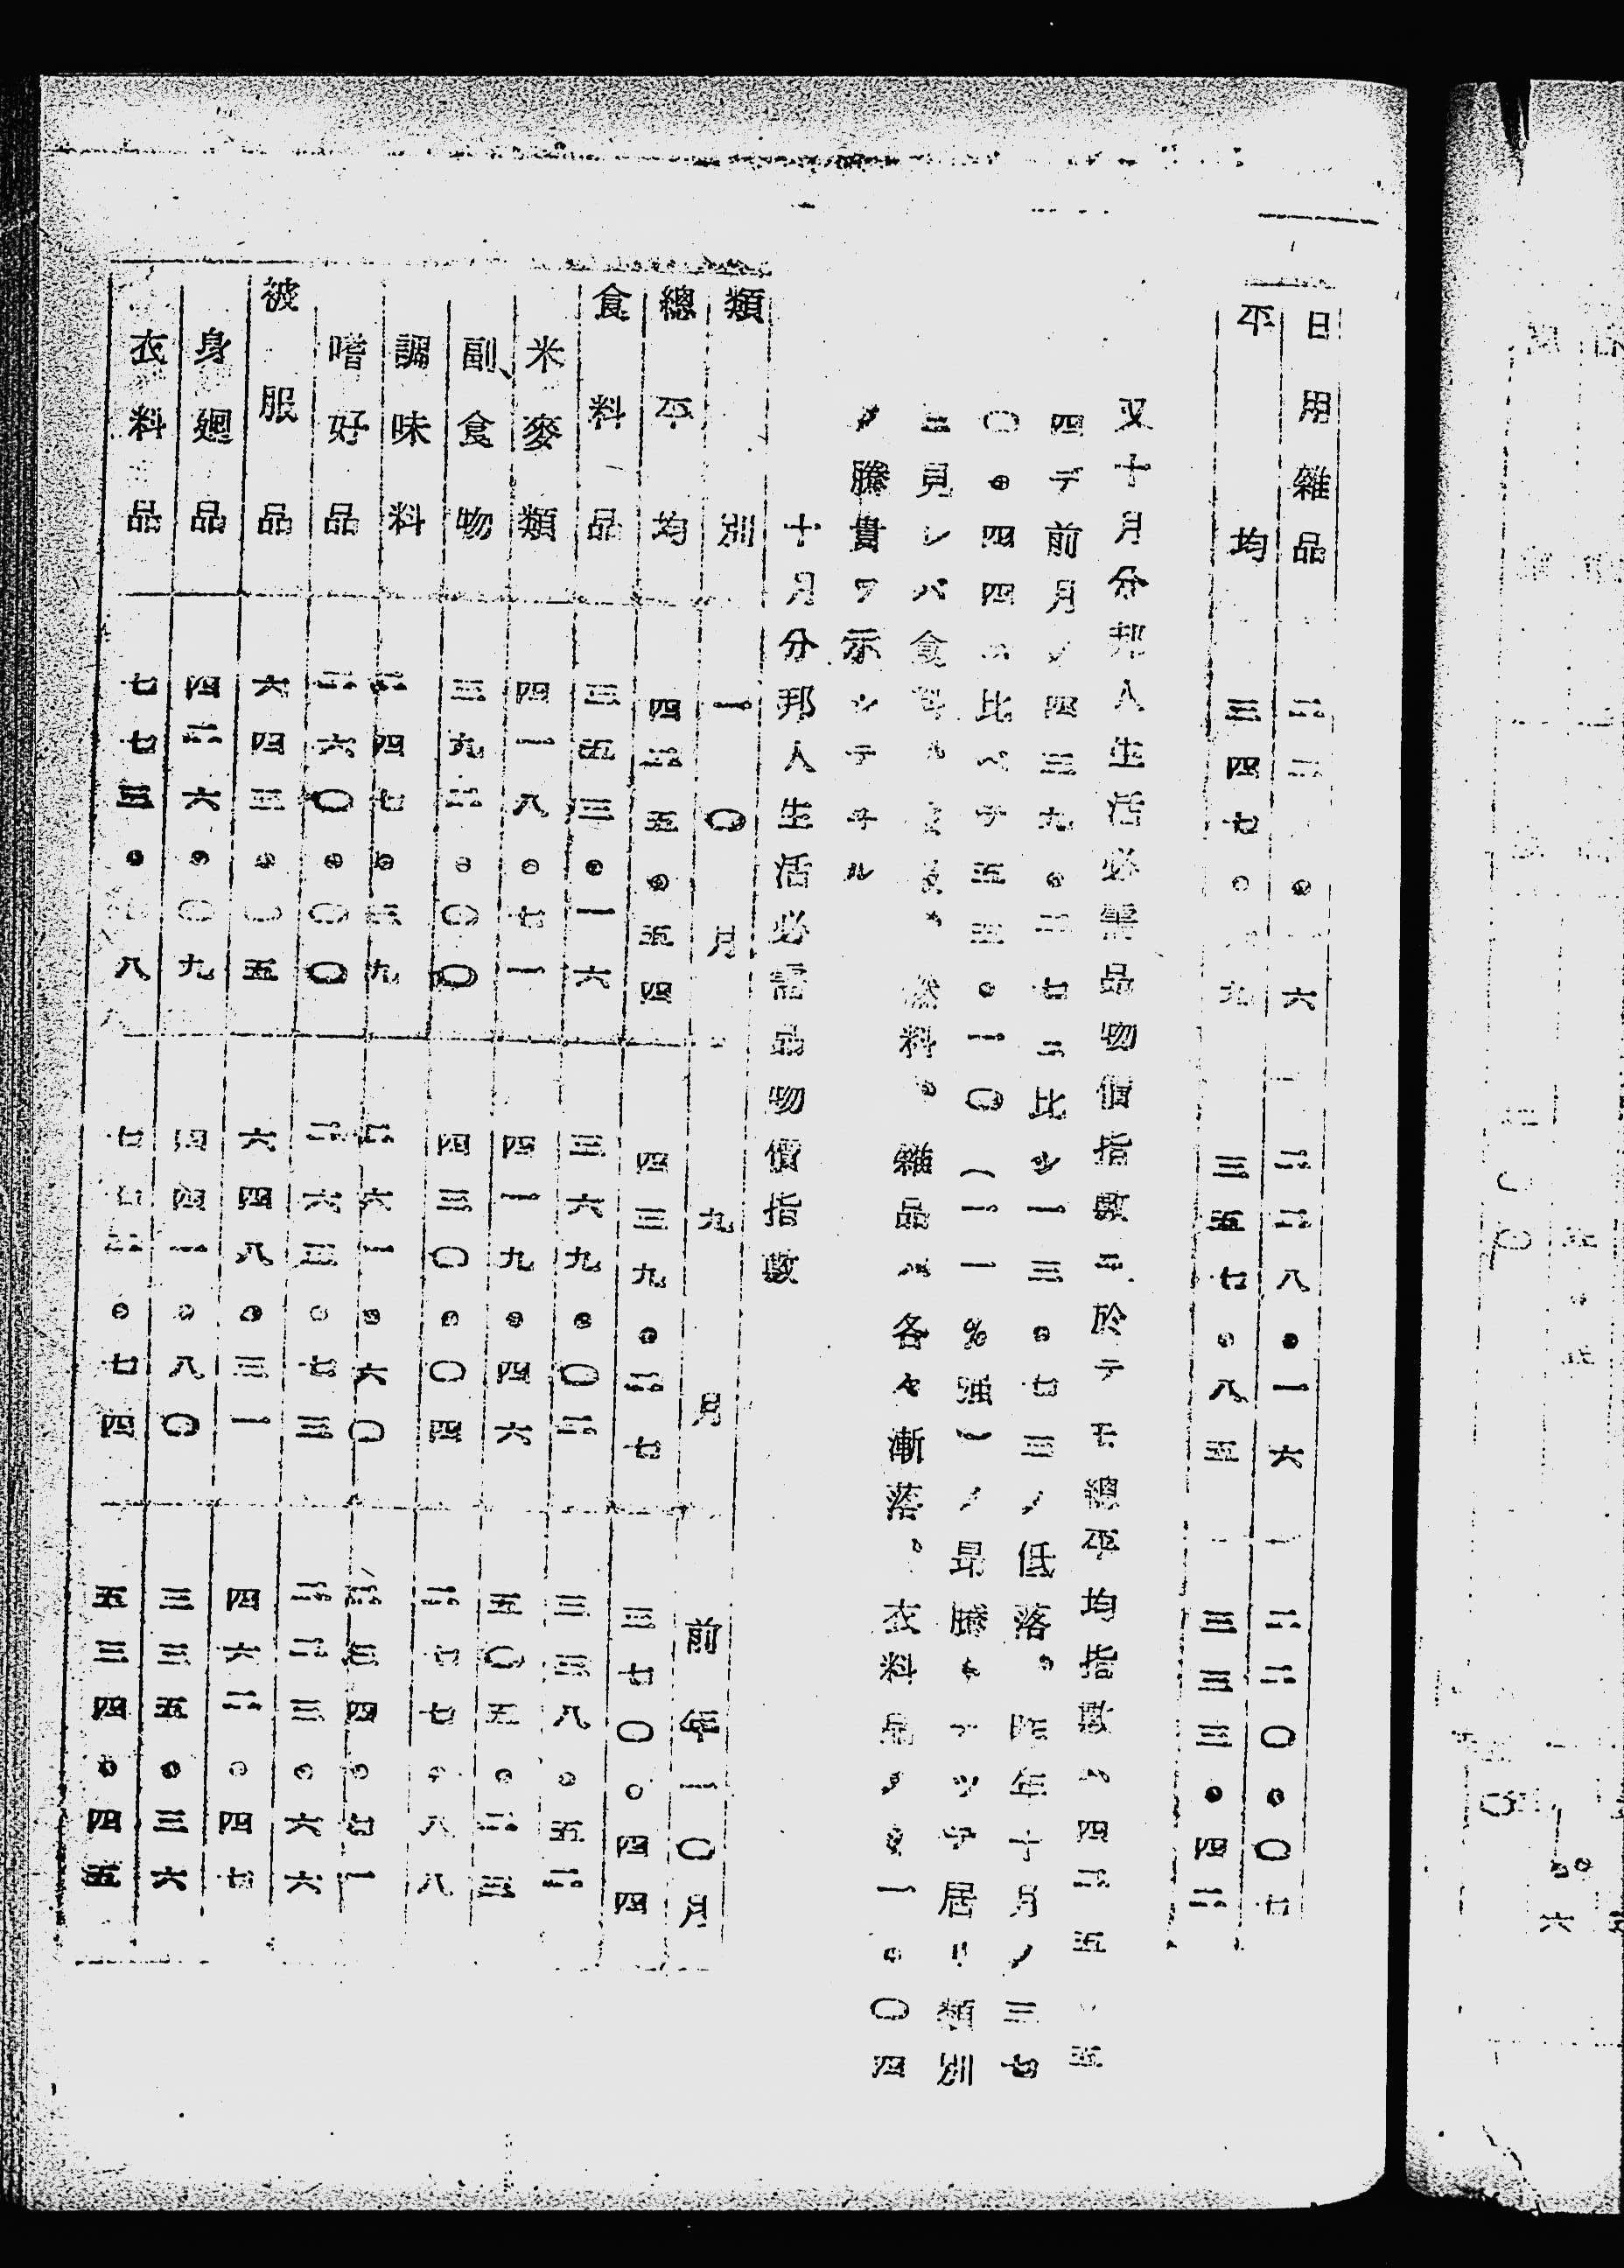 日用雜品 二二 。 六 二二八。一六 二二〇。〇七
平均 三四七。 九 三五七。八五 三三三。四二
又十月分邦人生活必需品物價指數ニ於テモ總平均指數ハ四二五 五
四デ前月ノ四三九。二七ニ比シ一三。七三ノ低落。昨年十月ノ三七
〇。四四ニ比ベテ五五。一〇(一一%强)ノ昻騰トナツテ居リ類別
ニ見レバ食料 燃料。雜品ハ各々漸落、衣料品ノミ一。〇四
ノ騰貴ヲ示シテヰル
十月分邦人生活必需品物價指數
類別 一〇月 九月 前年一〇月
總平均 四二五。五四 四三九。二七 三七〇。四四
食料品 三五三。一六 三六九。〇二 三三八。五二
米麥類 四一八。七一 四一九。四六 五〇五。二三
副食物 三九二。〇〇 四三〇。〇四 二七七。八八
調味料 二四七。三九 二六一。六〇 二三四。七一
嗜好品 二六〇。〇〇 二六三。七三 二二三。六六
被服品 六四三。〇五 六四八。三一 四六二。四七
身廻品 四二六。〇九 四四一。八〇 三三五。三六
衣料品 七七三。 八 七七二。七四 五三四。四五